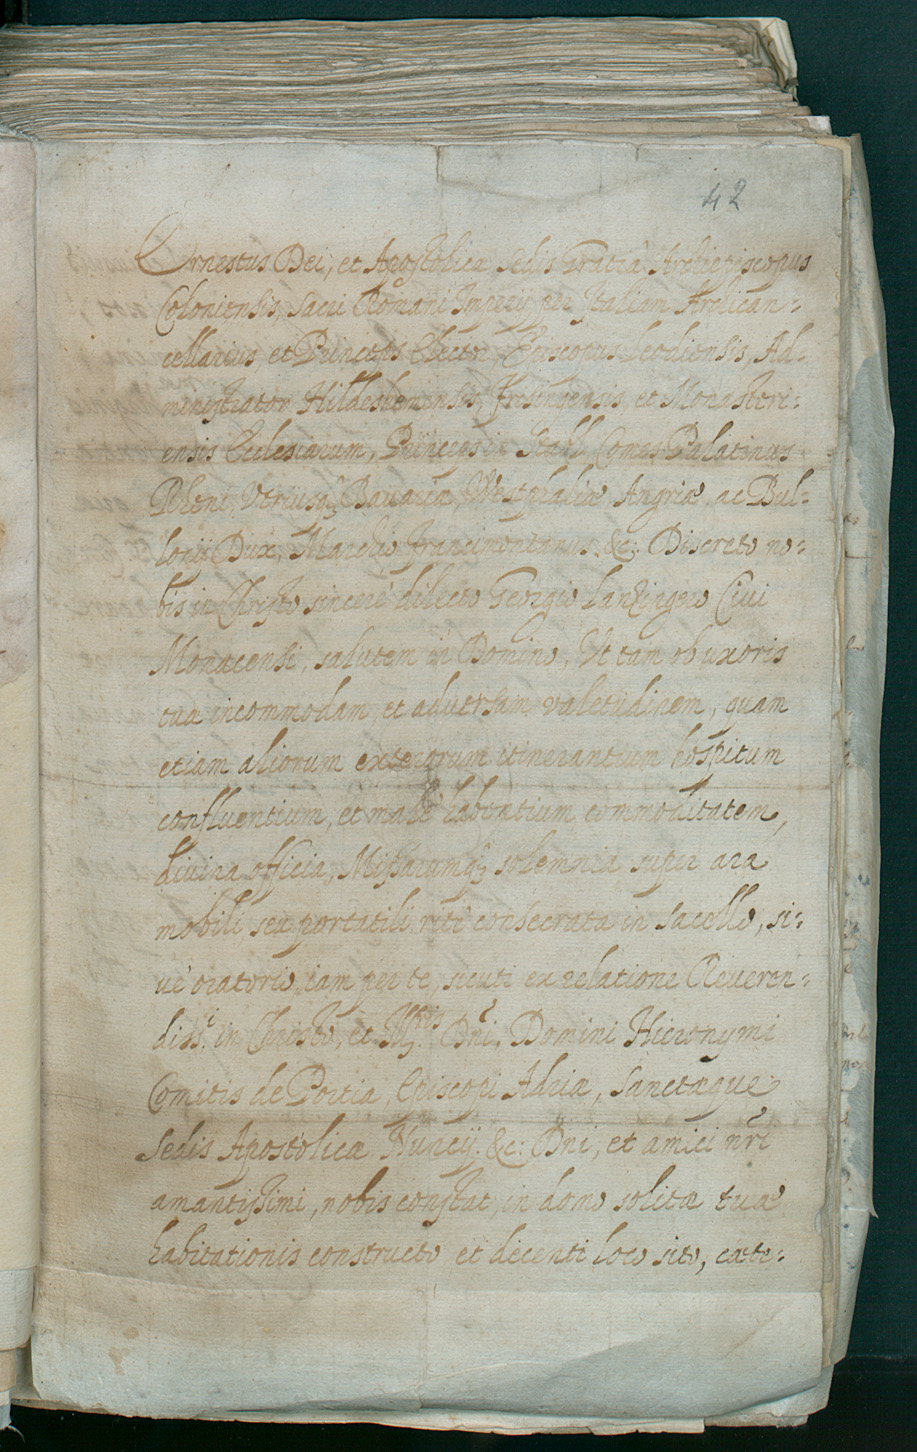 42
Ernestus Dei, et Apostolicæ Sedis Gratiâ Archiepiscopus
Coloniensis, Sacri Romani Imperij per Italiam Archican-
cellarius, et Princeps Elector, Episcopus Leodiensis, Ad-
ministrator Hildesheimensis, Frisingensis, et Monasteri-
ensis Ecclesiarum, Princeps in Stabl, Comes Palatinus
Rheni, Utriusq; Bavariæ, Westphaliæ Angriæ, ac Bul-
lonij Dux, Marchio Francimontanus &c: Discreto no-
bis in Christo sincerè dilecto Georgio Lanzingero Ciui
Monacensi, salutem in Domino, Ut tam ob uxoris
tuæ incommodam, et aduersam valetudinem, quam
etiam aliorum exterorum itinerantium hospitum
confluentium, et malè habentium commoditatem,
divina officia, Missarumq; solemnia super ara
mobili, seu portatili ritè consecrata in Sacello, si-
uè oratorio iam per te, sicuti ex relatione Reueren-
diss:i in Christo, et Ill:mi Dñi, Domini Hieronymi
Comitis de Portia, Episcopi Adriæ, Sanctæque
Sedis Apostolicæ Nuncij &c: Dñi, et amici nr̃i
amantissimi, nobis constat, in domo solitæ tuæ
habitationis constructo et decenti loco sito, cæte-